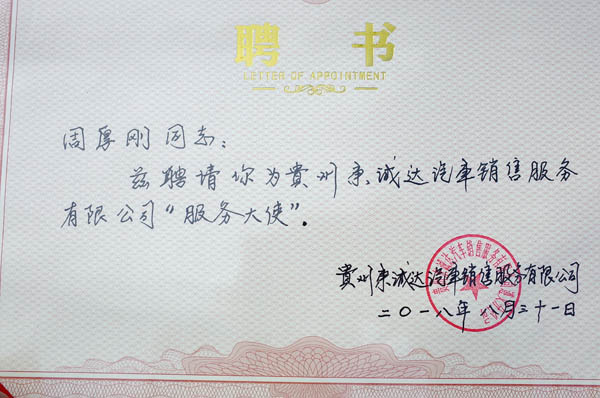 聘 书
LETTER OF APPOINTMENT
周厚刚同志：
兹聘请你为贵州康诚达汽車销售服务
有限公司“服务大侠”．
貴州康诚达汽車销售服务有限公司
二〇一八年八月三十一日